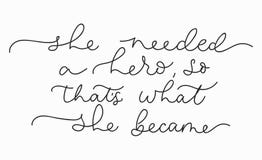 she needed
a hero, so
that's what
she became